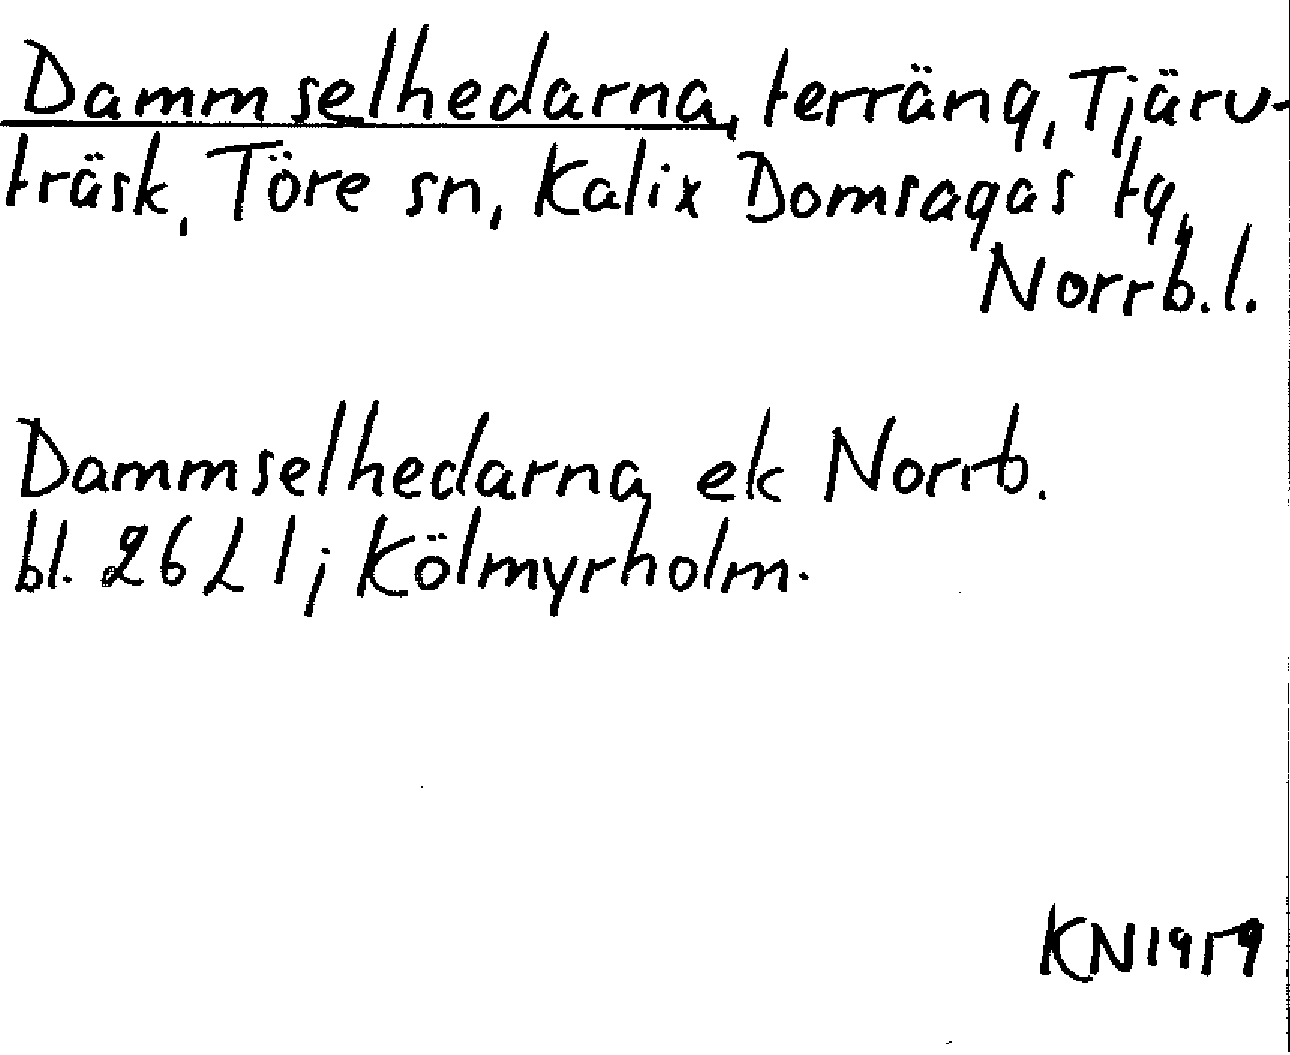 Dammselhedarna, terräng, Tjärv-
träsk, Töre sn, Kalix Domsagas tg,
Norrb. l.
Dammselhedarna ek Norrb.
bl. 26 L 1; Kölmyrholm.
KN 1959